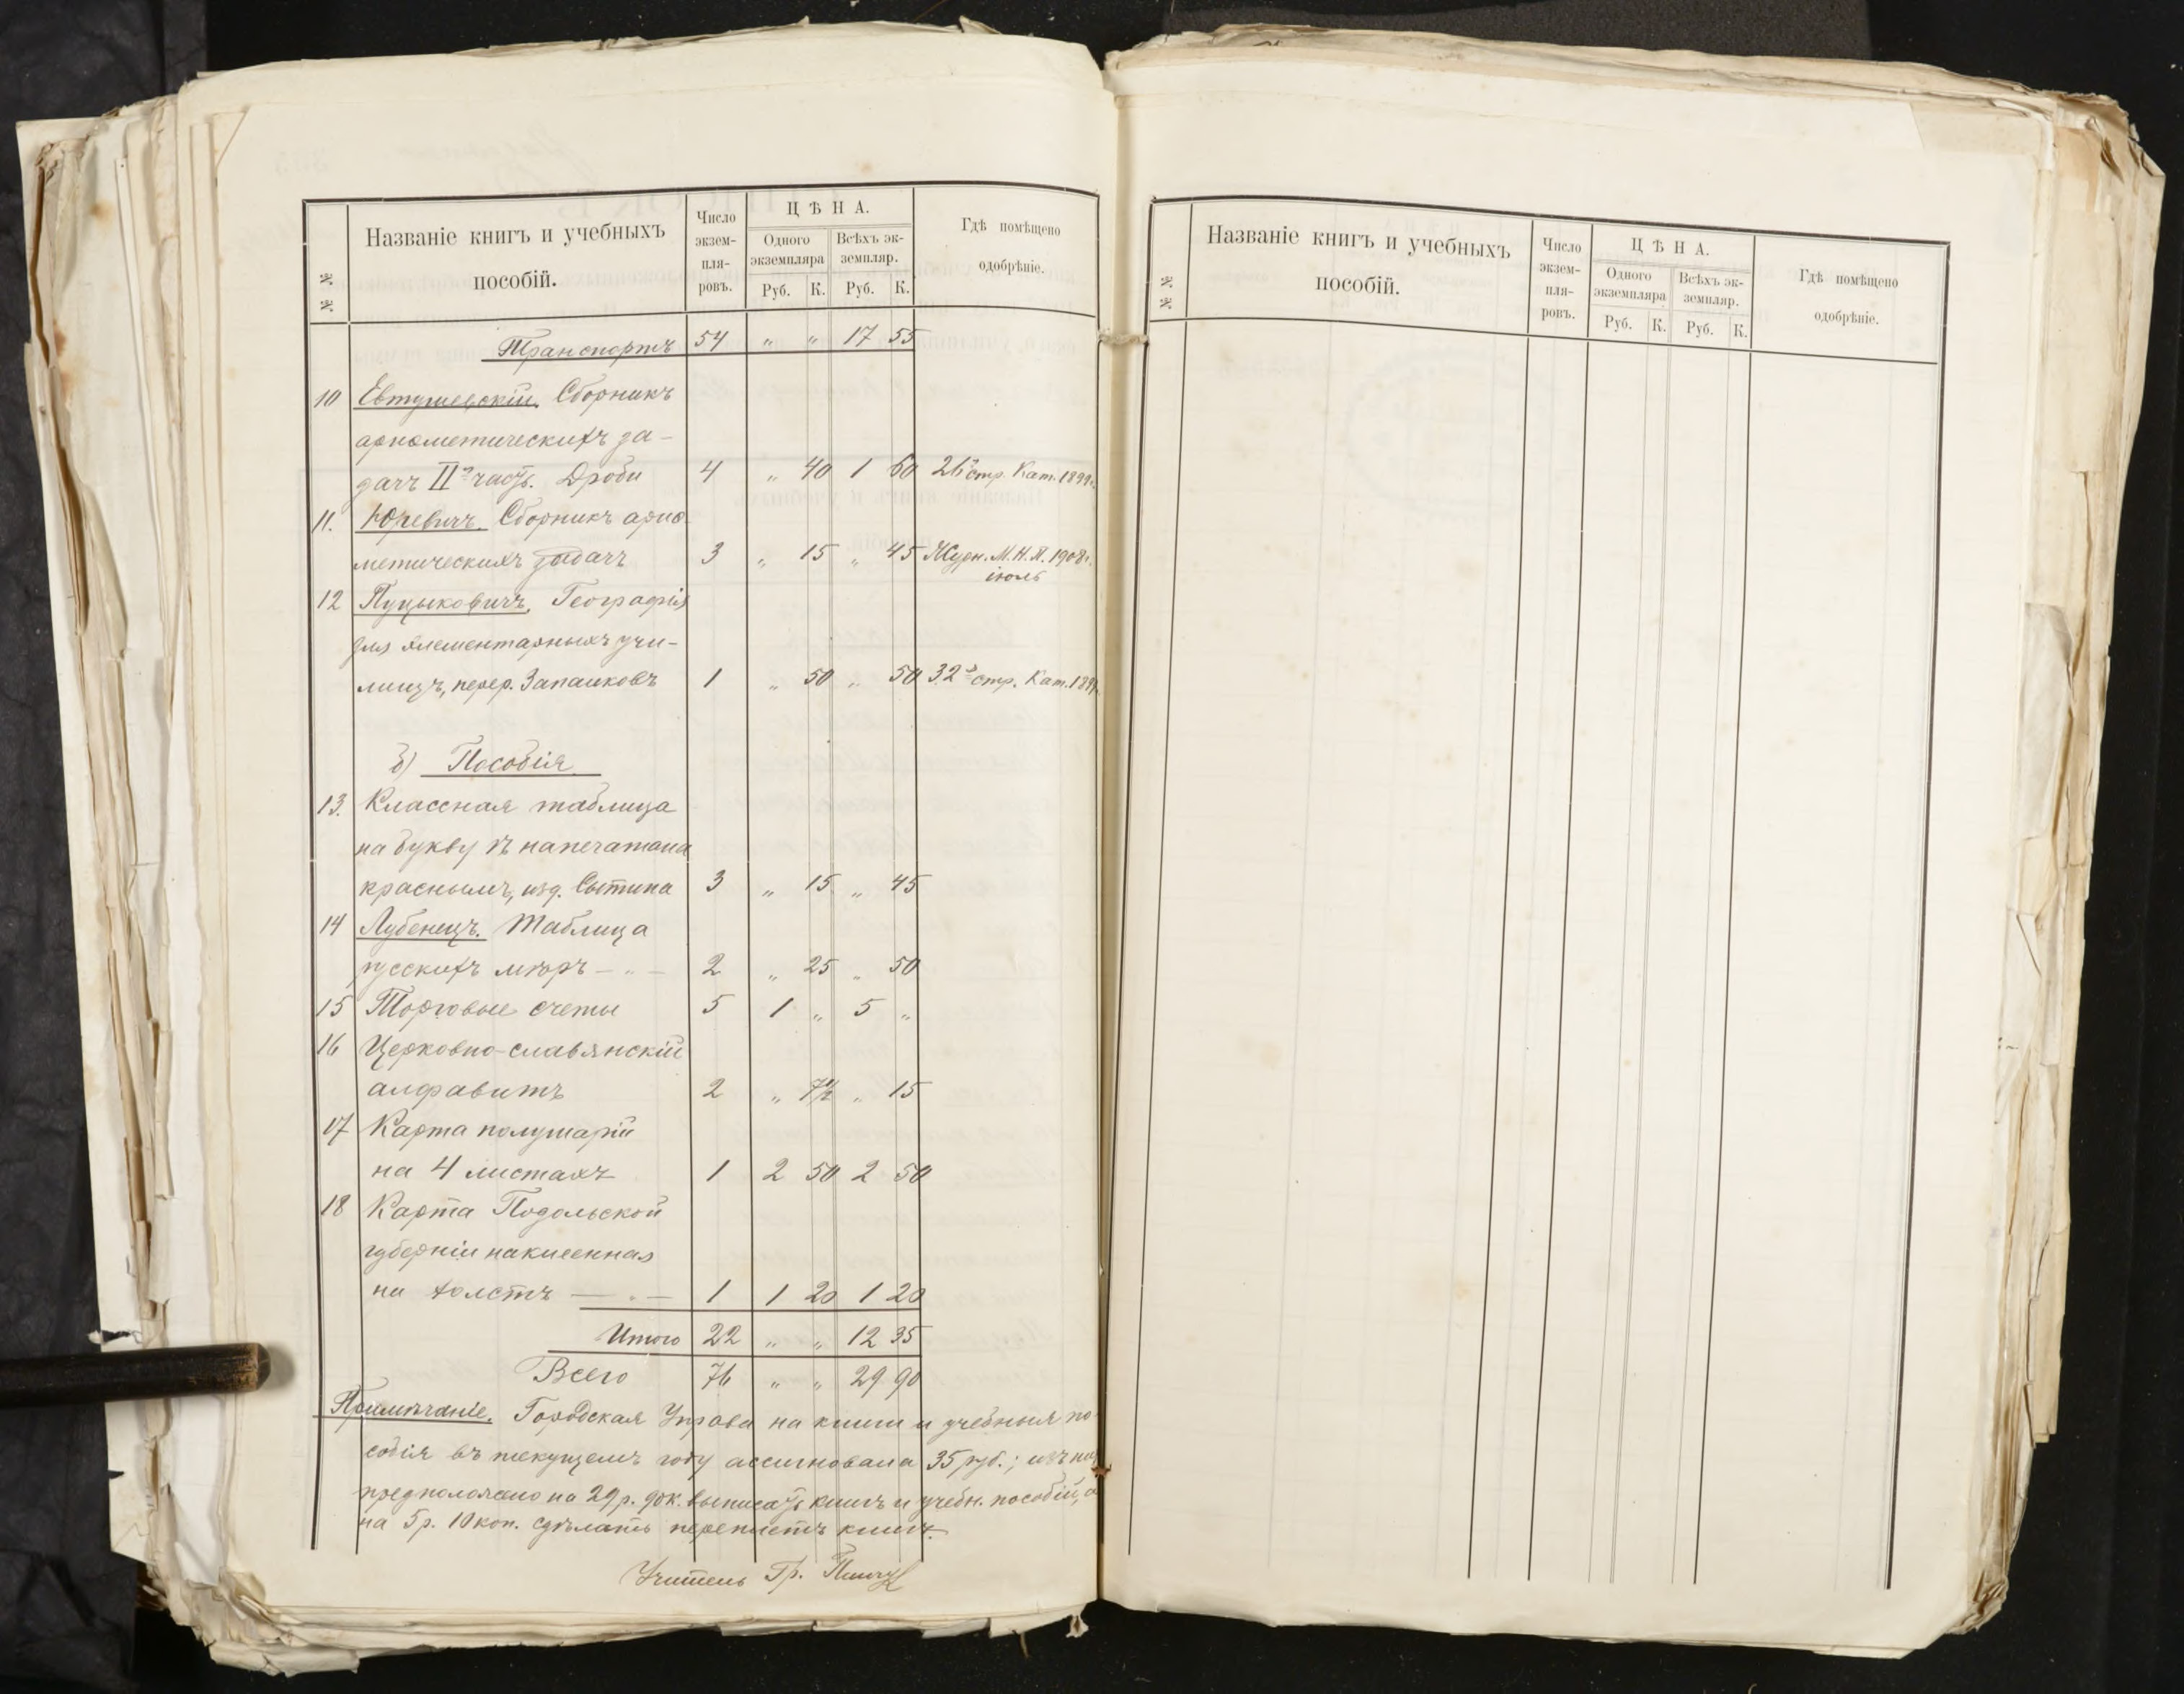 № №
Названіе книгъ и учебныхъ
пособій.
Число
экзем-
пля-
ровъ.
ЦѢНА.
Одного
экземпляра
Всѣхъ эк-
земпляр.
Руб. К. Руб. К.
Гдѣ помѣщено
одобрѣніе.
Транспортъ 54 " " 17 55
10 Евтушевскій. Сборникъ
ариѳметическихъ за-
дачъ II-я часть. Дроби 4 " 40 1 60 26 стр. Кат. 1899г.
11. Юревичъ. Сборникъ ариѳ
метическихъ задачъ 3 " 15 " 45 Журн. М. Н. П. 1908г.
іюль
12 Пуцыковичъ. Географія
для элементарныхъ учи-
лищъ, перер. Запанковъ 1 " 50 " 50 32 стр. Кат. 1899
б) Пособія
13. Классная таблица
на букву ѣ напечатана
краснымъ, изд. Сытина 3 " 15 " 45
14 Лубенецъ. Таблица
русскихъ мѣръ — " — 2 " 25 " 50
15 Торговые счеты 5 1 " 5 "
16 Церковно-славянскій
алфавитъ 2 " 7½ " 15
17 Карта полушарій
на 4 листахъ 1 2 50 2 50
18 Карта Подольской
губерніи наклеенная
на холстъ — " — 1 1 20 1 20
Итого 22 " " 12 35
Всего 76 " " 29 90
Примѣчаніе. Городская Управа на книги и учебныя по
собія въ текущемъ году ассигновала 35 руб.; изъ нихъ
предположено на 29 р. 90 к. выписать книгъ и учебн. пособій, а
на 5 р. 10 коп. сдѣлать переплетъ книгъ.
Учитель Гр.
№ №
Названіе книгъ и учебныхъ
пособій.
Число
экзем-
пля-
ровъ.
ЦѢНА.
Одного
экземпляра
Всѣхъ эк-
земпляр.
Руб. К. Руб. К.
Гдѣ помѣщено
одобрѣніе.